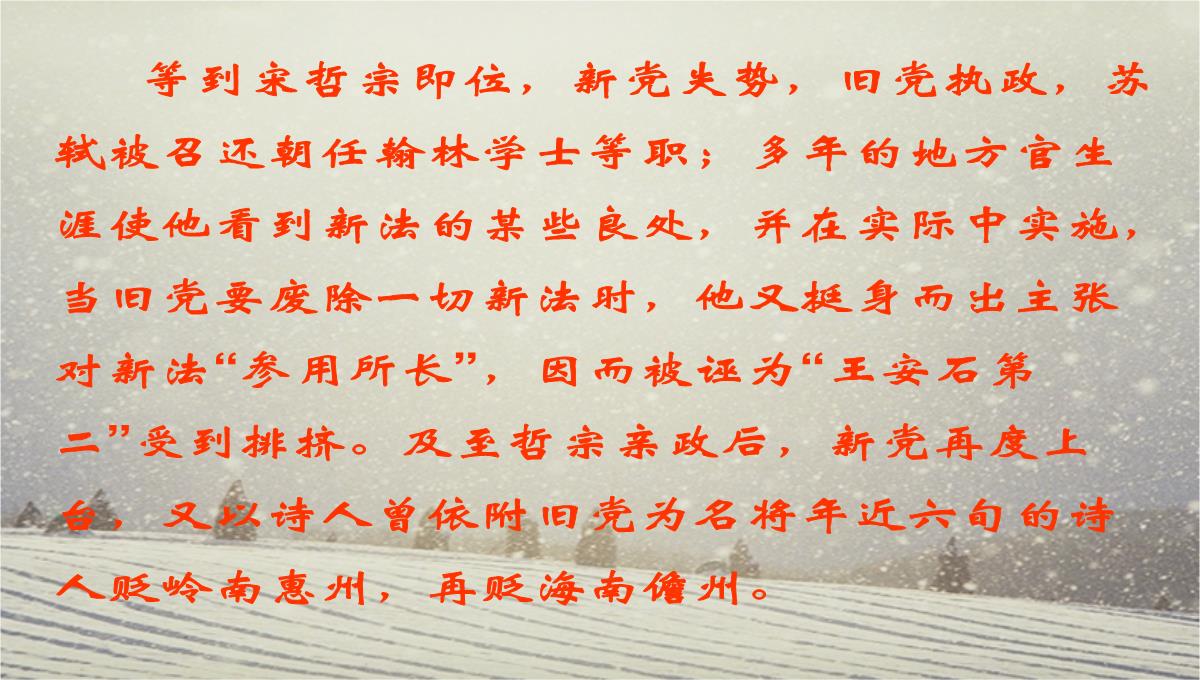 等到宋哲宗即位，新党失势，旧党执政，苏
轼被召还朝任翰林学士等职；多年的地方官生
涯使他看到新法的某些良处，并在实际中实施，
当旧党要废除一切新法时，他又挺身而出主张
对新法“参用所长”，因而被诬为“王安石第
二”受到排挤。及至哲宗亲政后，新党再度上
台，又以诗人曾依附旧党为名将年近六旬的诗
人贬岭南惠州，再贬海南儋州。